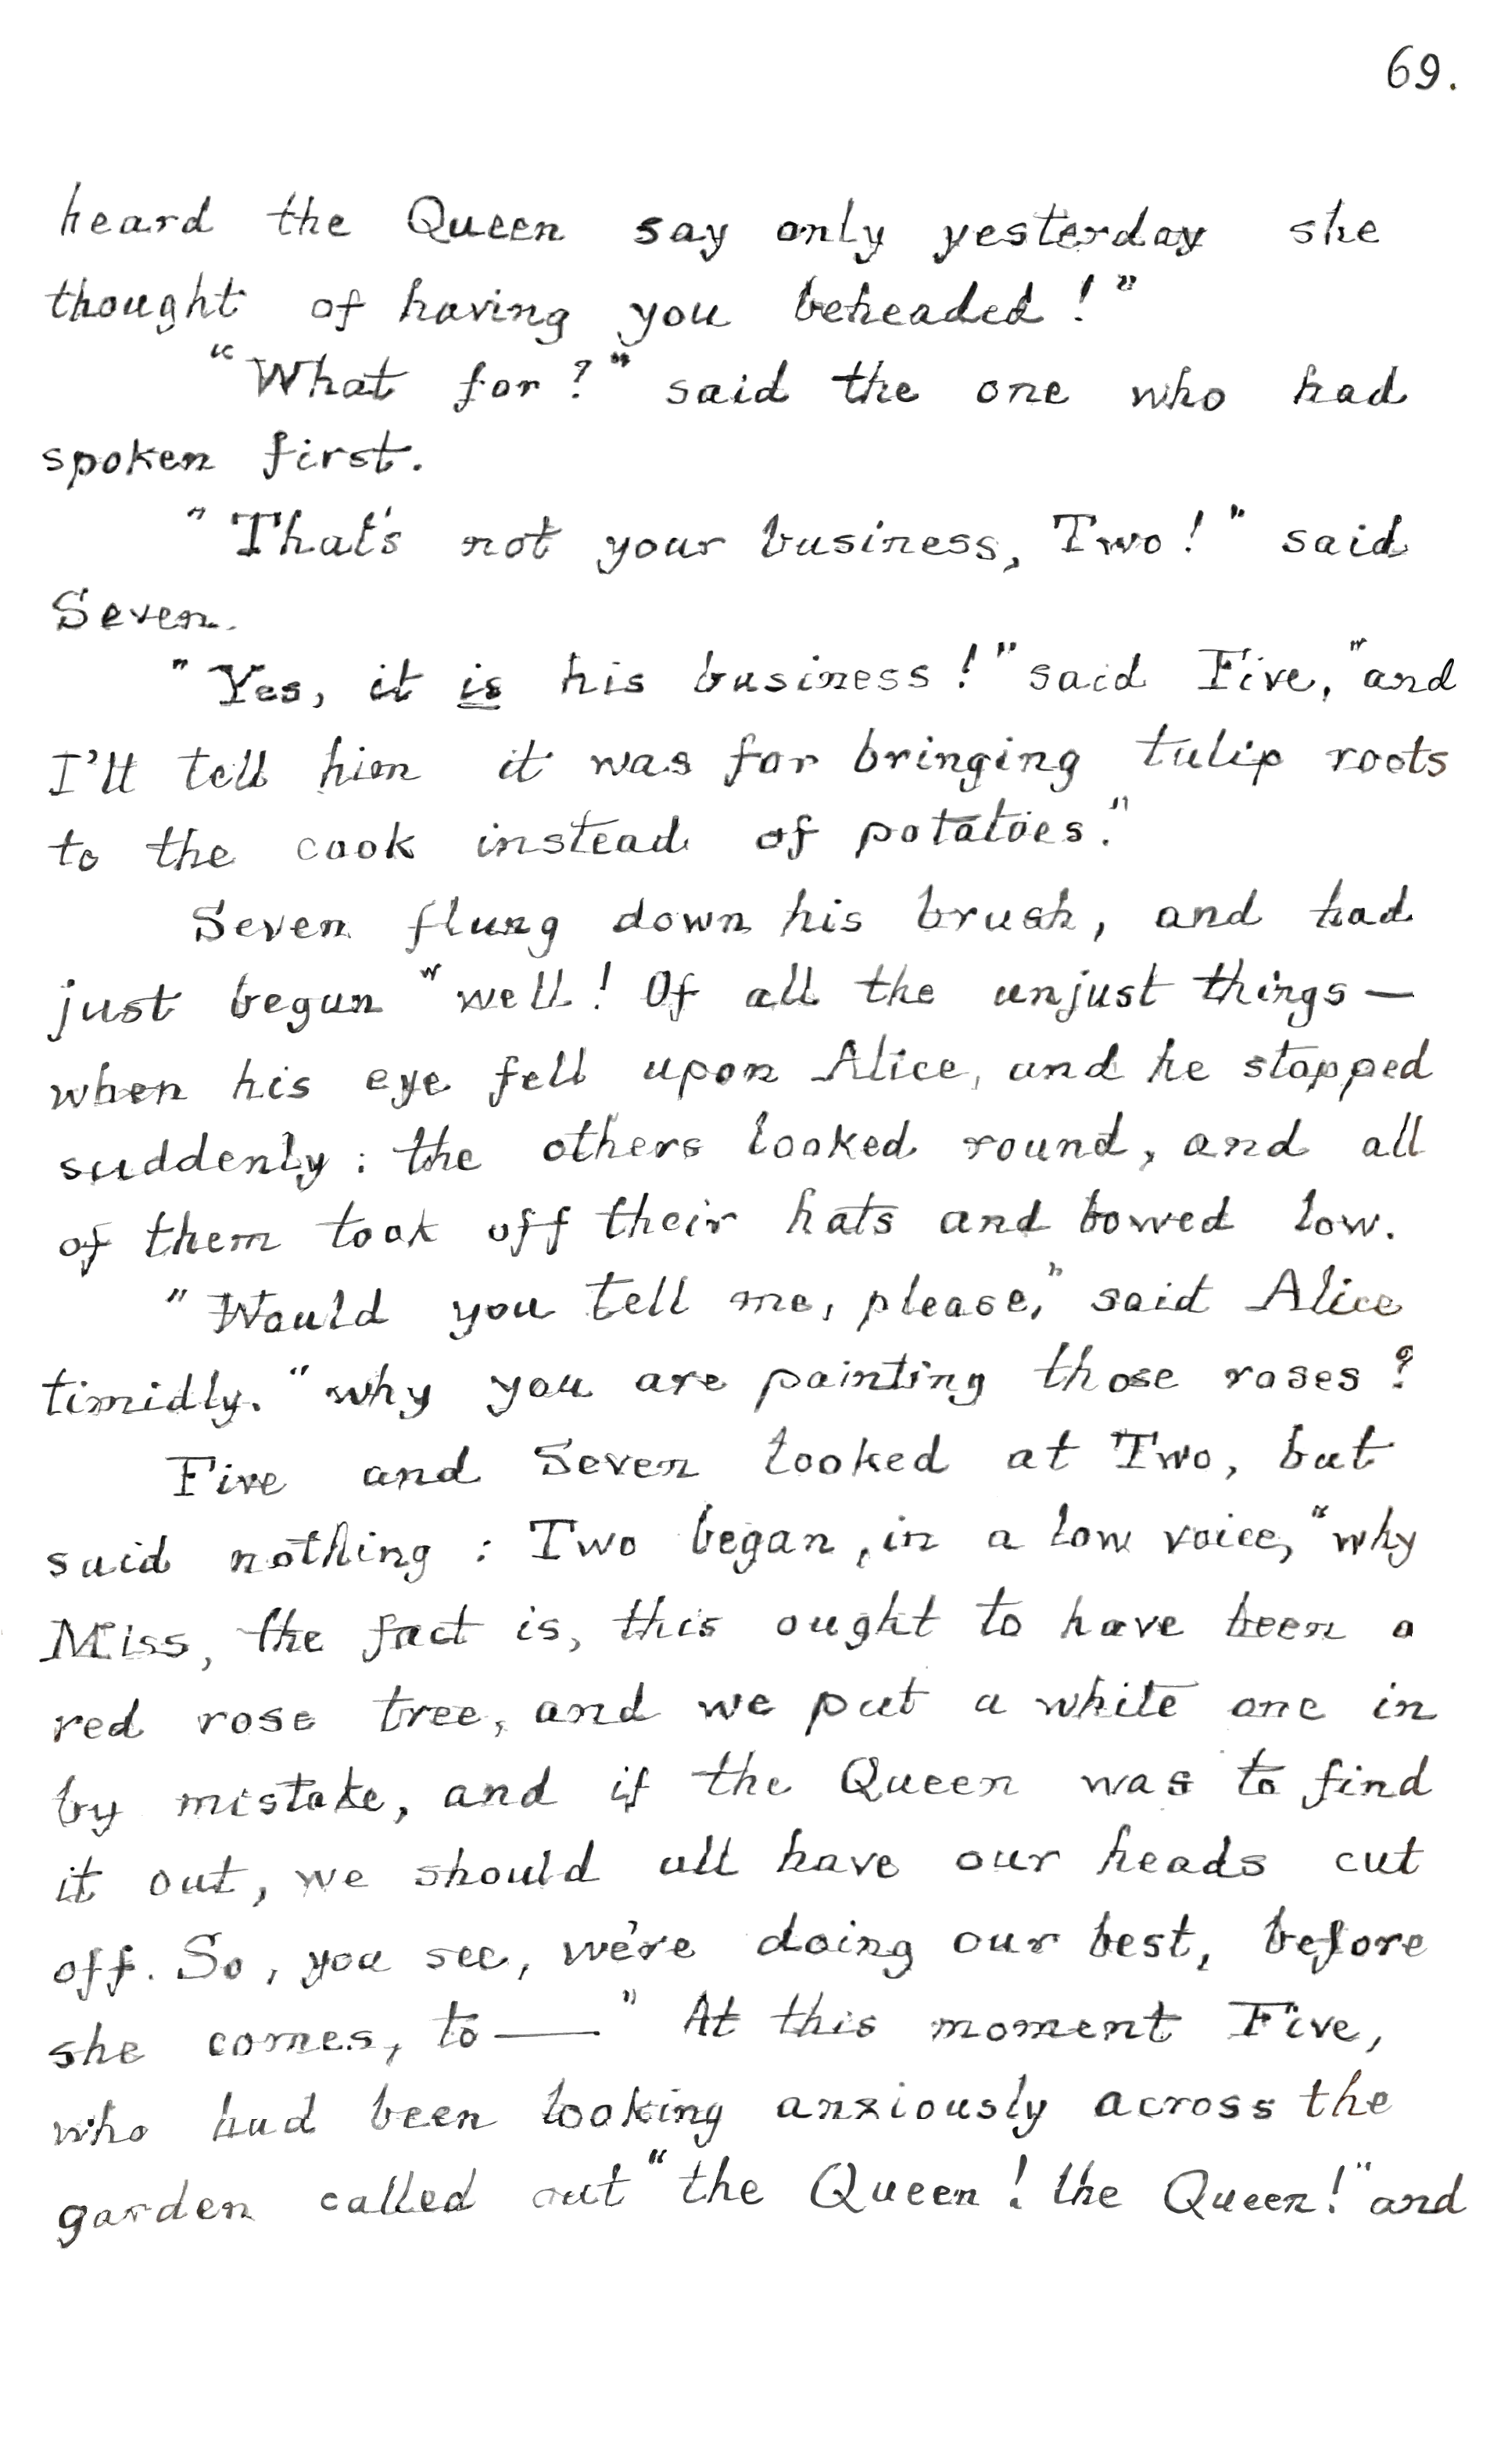 69.
heard the Queen say only yesterday she
thought of having you beheaded!"
"What for?" said the one who had
spoken first.
"That's not your business, Two!" said
Seven.
"Yes, it is his business!" said Five, "and
I'll tell him it was for bringing tulip roots
to the cook instead of potatoes."
Seven flung down his brush, and had
just begun "well! Of all the unjust things—
when his eye fell upon Alice, and he stopped
suddenly: the others looked round, and all
of them took off their hats and bowed low.
"Would you tell me, please," said Alice
timidly. "why you are painting those roses?
Five and Seven looked at Two, but
said nothing: Two began, in a low voice, "why
Miss, the fact is, this ought to have been a
red rose tree, and we put a white one in
by mistake, and if the Queen was to find
it out, we should all have our heads cut
off. So, you see, we're doing our best, before
she comes, to——" At this moment Five,
who had been looking anxiously across the
garden called out "the Queen! the Queen!" and